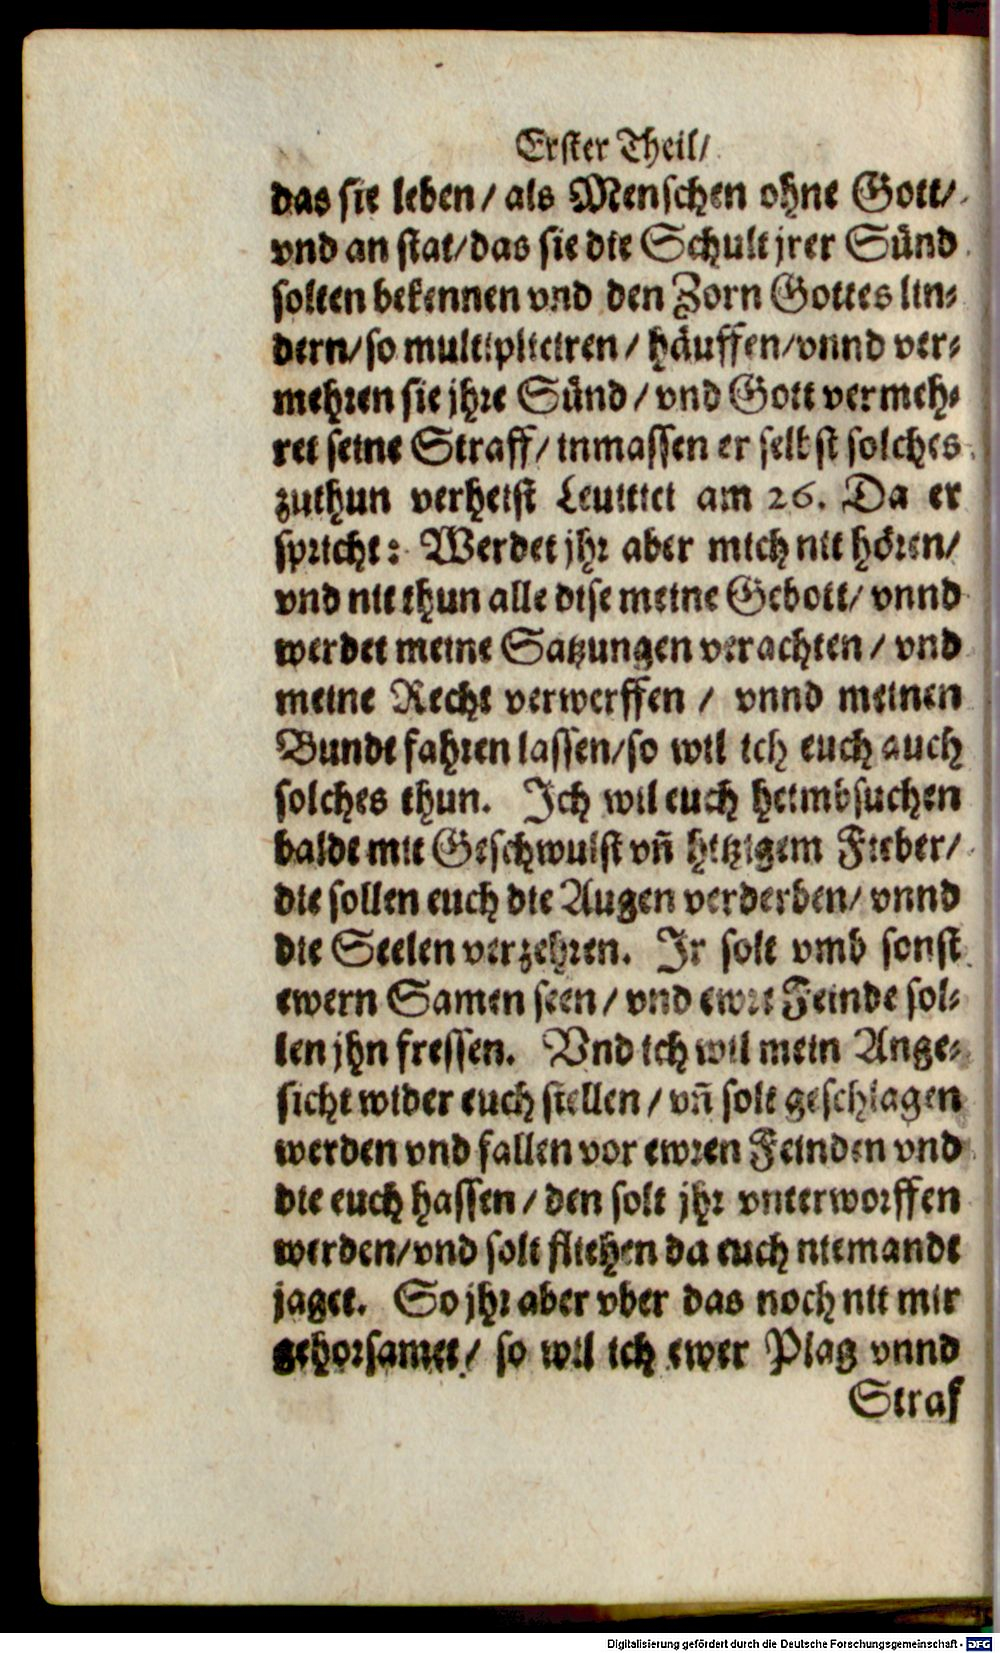 Erster Theil/
das sie leben/ als Menschen ohne Gott/
vnd an stat/das sie die Schult jrer Sünd
solten bekennen vnd den Zorn Gottes lin-
dern/so multipliciren/ häuffen/vnnd ver-
mehren sie jhre Sünd/ vnd Gott vermeh-
ret seine Straff/ inmassen er selbst solches
zuthun verheist Leuitici am 26. Da er
spricht: Werdet jhr aber mich nit hören/
vnd nit thun alle dise meine Gebott/ vnnd
werdet meine Satzungen verachten/ vnd
meine Recht verwerffen/ vnnd meinen
Bundt fahren lassen/so wil ich euch auch
solches thun. Ich wil euch heimbsuchen
baldt mit Geschwulst vñ hitzigem Fieber/
die sollen euch die Augen verderben/ vnnd
die Seelen verzehren. Ir solt vmb sonst
ewern Samen seen/ vnd ewre Feinde sol-
len jhn fressen. Vnd ich wil mein Ange-
sicht wider euch stellen/ vñ solt geschlagen
werden vnd fallen vor ewren Feinden vnd
die euch hassen/ den solt jhr vnterworffen
werden/vnd solt fliehen da euch niemandt
jaget. So jhr aber vber das noch nit mir
gehorsamet/ so wil ich ewer Plag vnnd
Straf
Digitalisierung gefördert durch die Deutsche Forschungsgemeinschaft - DFG